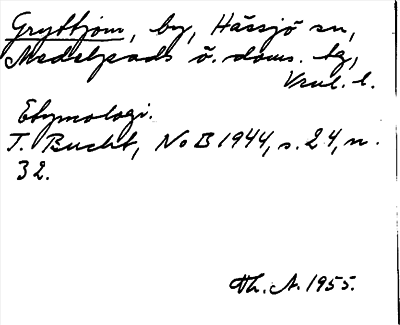 Gryttjom, by, Hässjö sn,
Medelpads ö. doms. tg,
Vnl. l.
Etymologi.
T. Bucht, NoB 1944, s. 24, n.
32.
Th. A. 1955.